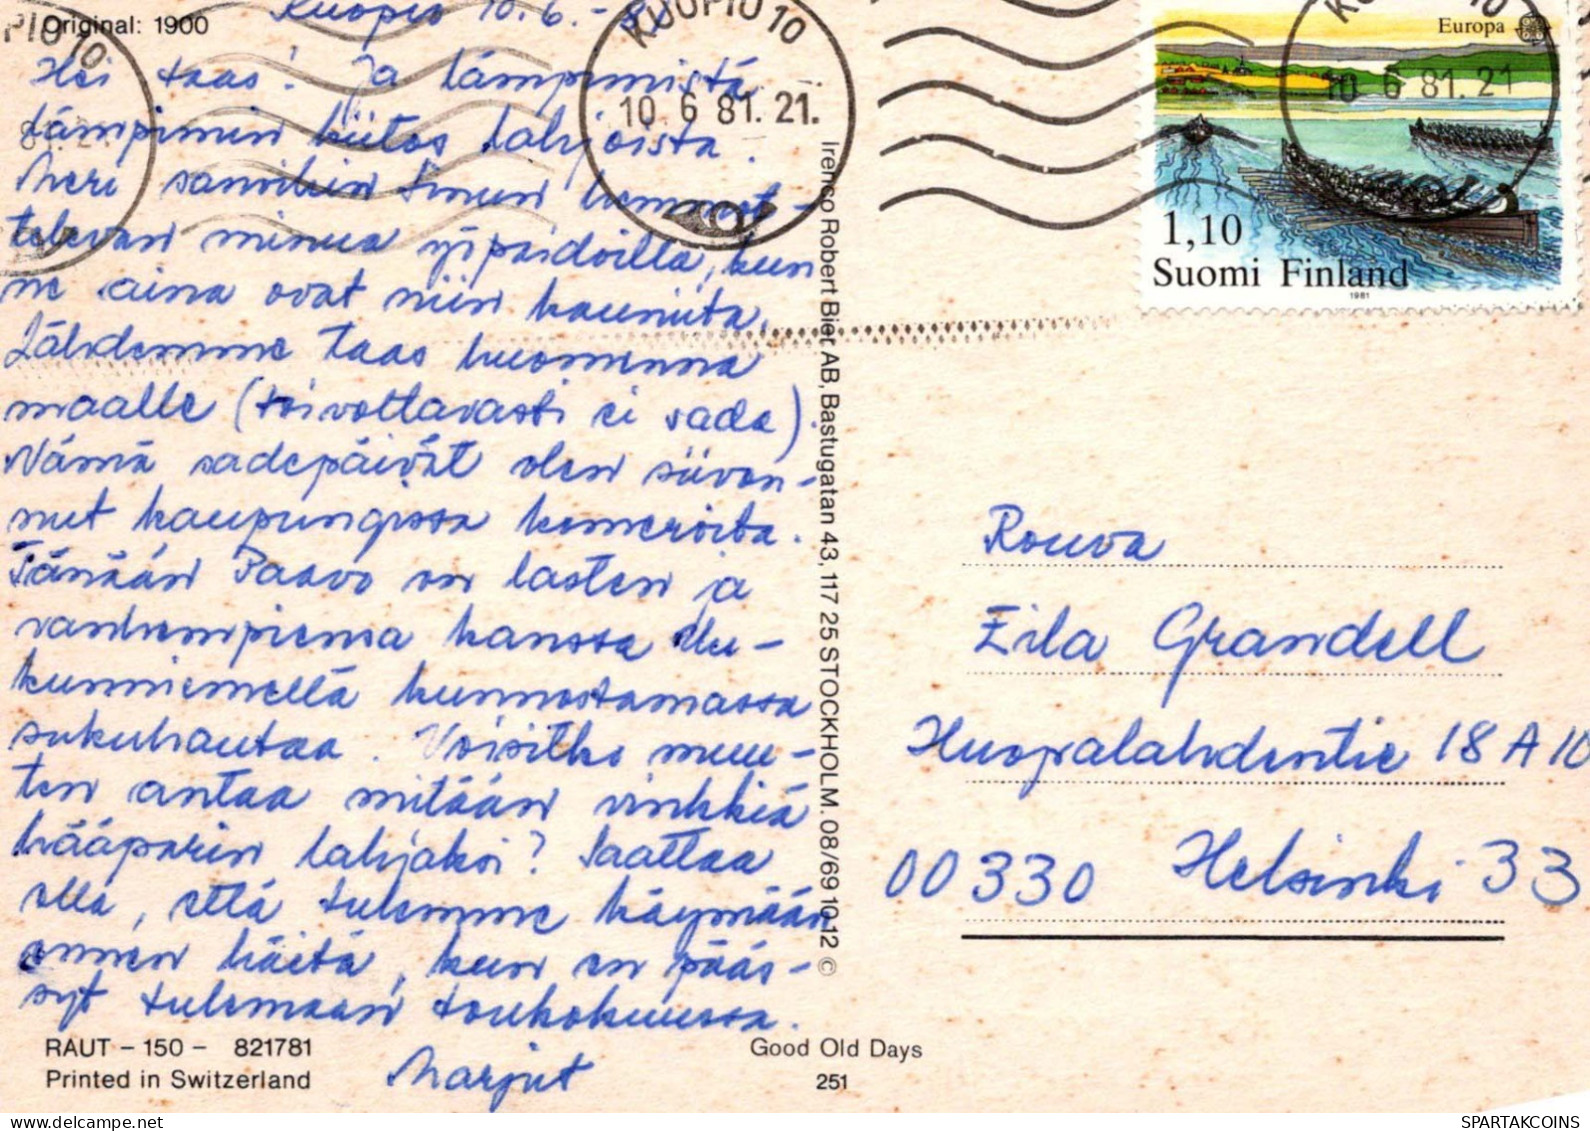 Original: 1900
Kuopio 10.6.-81
Hei taas! Ja lämpimistä
lämpimin kiitos lahjoista.
Meri sanoikin Sinun hemmot-
televan minua yöpaidoilla, kun
ne aina ovat niin kauniita.
Lähdemme taas huomenna
maalle (toivottavasti ei sada).
Nämä sadepäivät olen siivon-
nut kaupungissa komeroita.
Tänään Paavo on lasten ja
vanhempiensa kanssa
kunniemellä kunnostamassa
sukuhautaa. Voisitko muu-
ten antaa mitään vinkkiä
hääparin lahjaksi? Saattaa
olla, että tulemme käymään
ennen häitä, kun en pääs-
syt tulemaan toukokuussa.
Marjut
RAUT – 150 – 821781
Printed in Switzerland
Good Old Days
251
Irenco Robert Bier AB, Bastugatan 43, 117 25 STOCKHOLM. 08/69 10 12 ©
PIO 10
81. 21
KUOPIO 10
10. 6 81. 21.
KUOPIO 10
10 6 81. 21
Europa
1,10
Suomi Finland
1981
Rouva
Eila Grandell
Huopalahdentie 18 A 10
00330 Helsinki 33
SPARTAKCOINS
delcampe.net
SPARTAKCOINS.COM